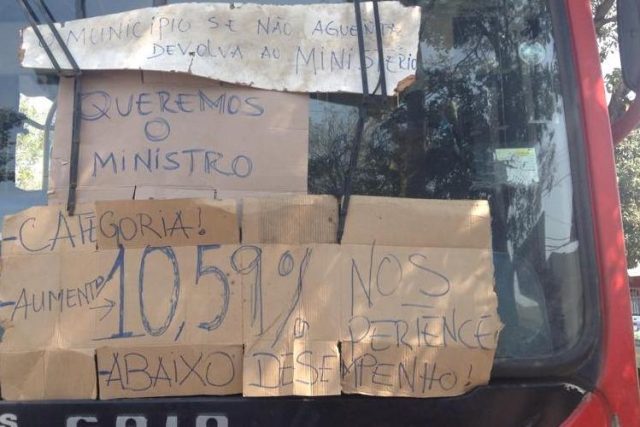 O MUNICIPIO SE NÃO AGUENTA
DEVOLVA AO MINISTÉRIO
QUEREMOS
O
MINISTRO
-CATEGORIA!
-AUMENTO→ 10,59% NOS
PERTENCE
-ABAIXO DESEMPENHO!